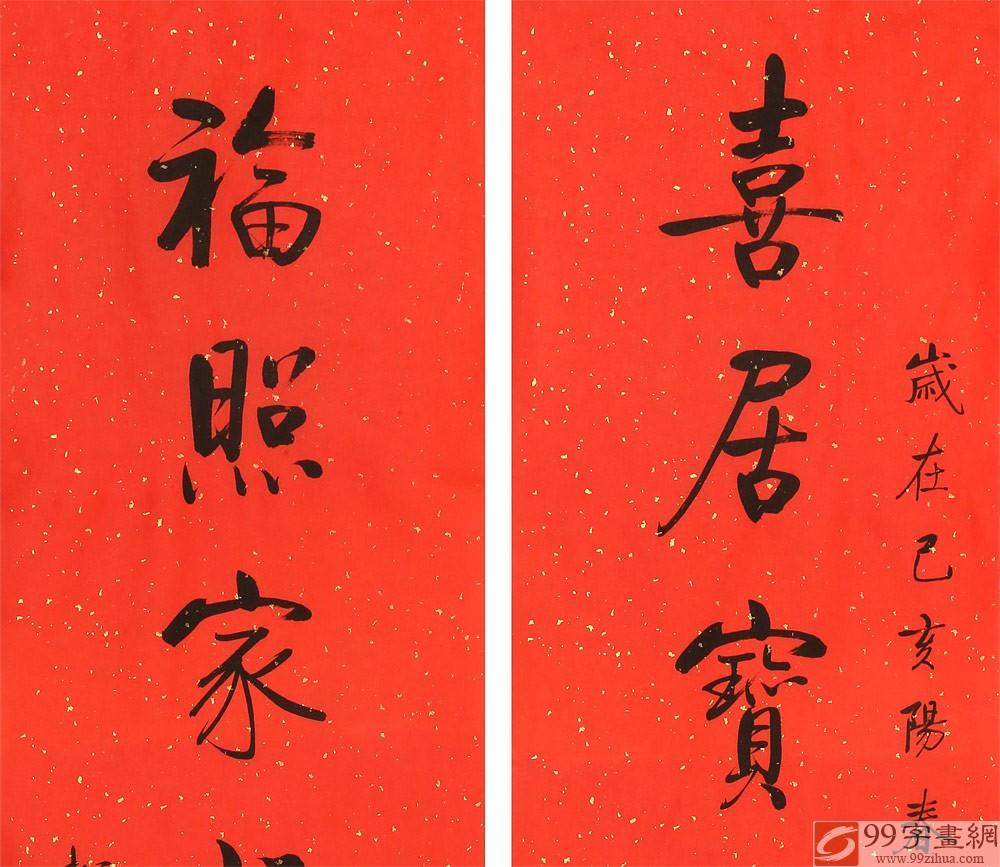 歲在己亥陽春
喜居寶
福照家
99字畫網
www.99zihua.com